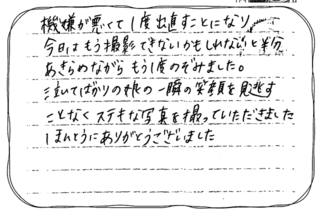 機嫌が悪くて1度出直すことになり
今日はもう撮影できないかもしれないと半分
あきらめながらもう1度のぞみました。
泣いてばかりの の一瞬の笑顔を見逃す
ことなくステキな写真を撮っていただきました
ほんとうにありがとうございました